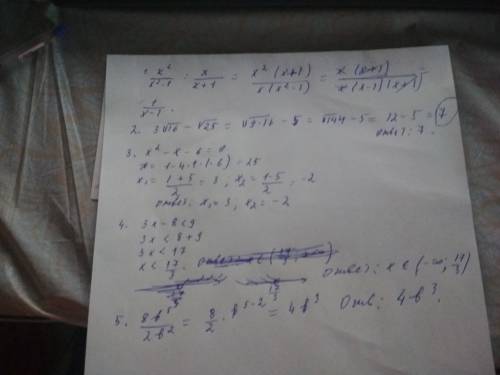 1. x²/(x²-1) : x/(x+1) = x²(x+1)/(x(x²-1)) = x(x+1)/(x(x-1)(x+1)) =
1/(x-1).
2. 3√16 - √25 = √9·16 - 5 = √144 - 5 = 12-5 = 7
ответ: 7.
3. x² - x - 6 = 0
D = 1-4·1·(-6) = 25
x₁ = (1+5)/2 = 3, x₂ = (1-5)/2 = -2
ответ: x₁ = 3, x₂ = -2
4. 3x - 8 < 9
3x < 8+9
3x < 17
x < 17/3. ответ: x ∈ (-∞; 17/3)
5. 8b⁵/2b² = 8/2 · b⁵⁻² = 4b³ Отв: 4b³.